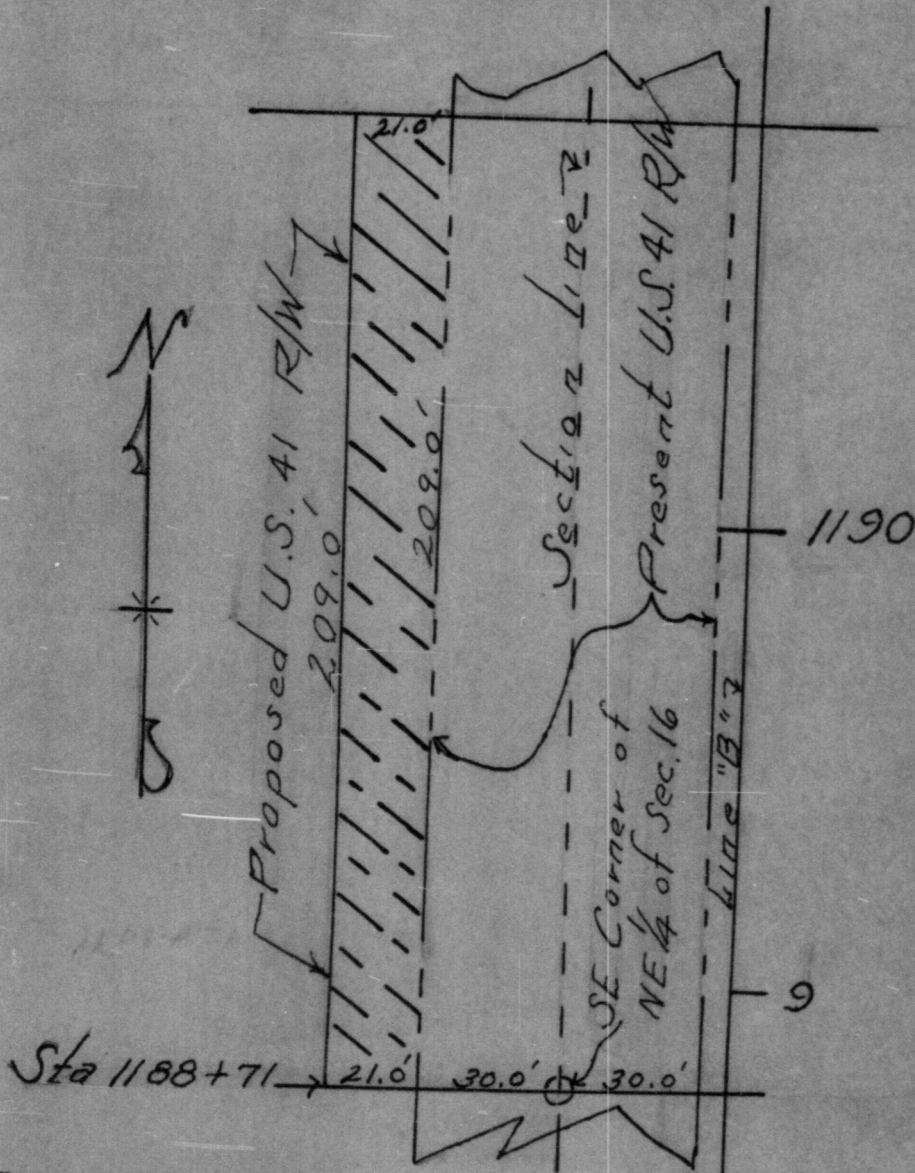 21.0'
N
Proposed U.S. 41 R/W
209.0'
209.0'
Section Line
Present U.S. 41 R/W
1190
Line "B"
SE Corner of
NE 1/4 of Sec. 16
9
Sta 1188+71
21.0'
30.0'
30.0'